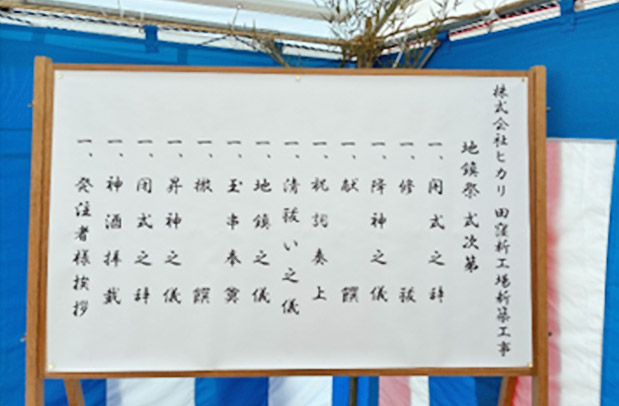 株式会社ヒカリ 田窪新工場新築工事
地鎮祭 式次第
一、開式之辞
一、修祓
一、降神之儀
一、献饌
一、祝詞奏上
一、清祓い之儀
一、地鎮之儀
一、玉串奉奠
一、撤饌
一、昇神之儀
一、閉式之辞
一、神酒拝戴
一、発注者様挨拶